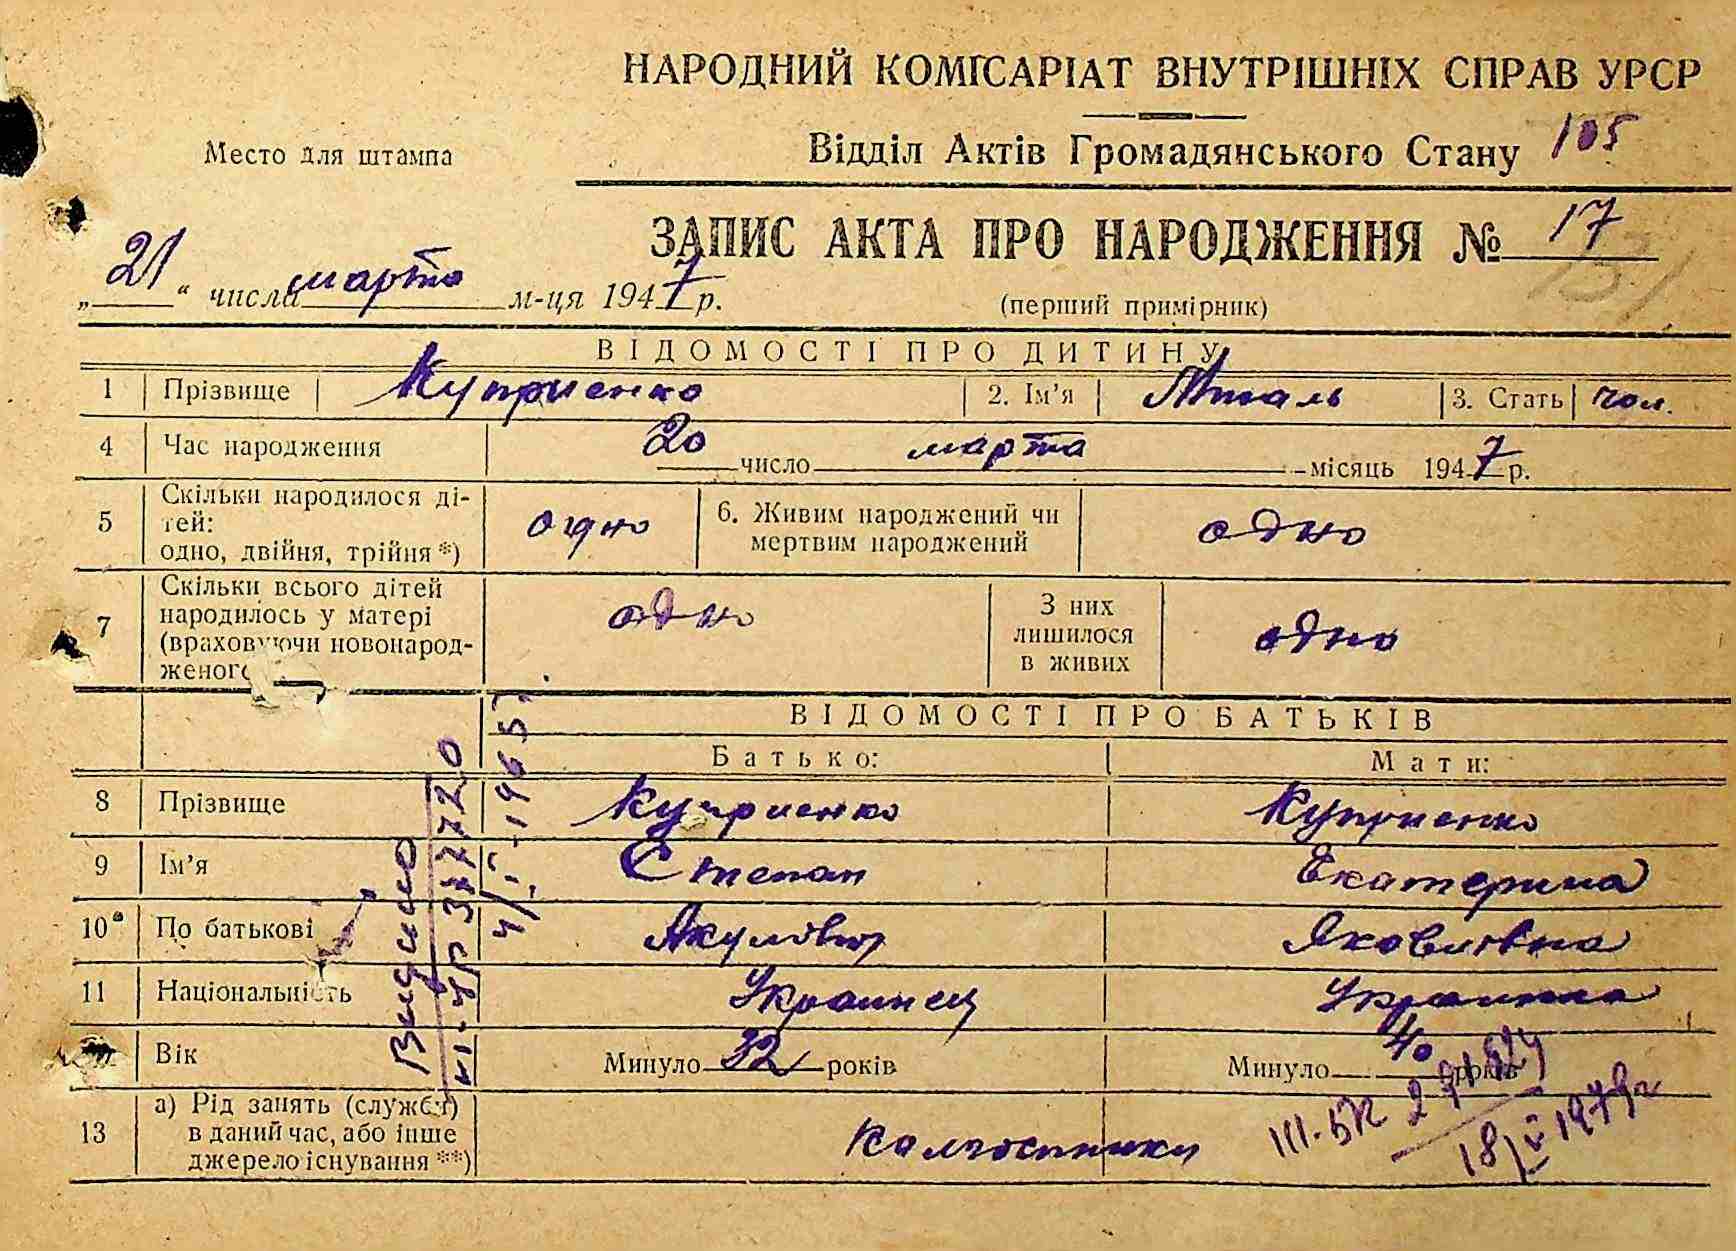 НАРОДНИЙ КОМІСАРІАТ ВНУТРІШНІХ СПРАВ УРСР
Место для штампа
Відділ Актів Громадянського Стану 105
ЗАПИС АКТА ПРО НАРОДЖЕННЯ № 17
„21“ числа марта м-ця 1947 р.
(перший примірник)
ВІДОМОСТІ ПРО ДИТИНУ
1 Прізвище Куприенко 2. Ім’я 3. Стать чол.
4 Час народження 20 число марта місяць 1947 р.
5 Скільки народилося ді-
тей:
одно, двійня, трійня *) одно
6. Живим народжений чи
мертвим народжений одно
7 Скільки всього дітей
народилось у матері
(враховуючи новонарод-
женого одно
З них
лишилося
в живих одно
ВІДОМОСТІ ПРО БАТЬКІВ
Батько: Мати:
8 Прізвище Куприенко Куприенко
9 Ім’я Степан Екатерина
10 По батькові Акулович Яковлівна
11 Національність Украинец Украинка
Вік Минуло 32 років Минуло 40 років
13 а) Рід занять (служби)
в даний час, або інше
джерело існування **) Колгоспники
Видано
III-УР 317720
4/V-1965г.
III-БК
18/V 1979г